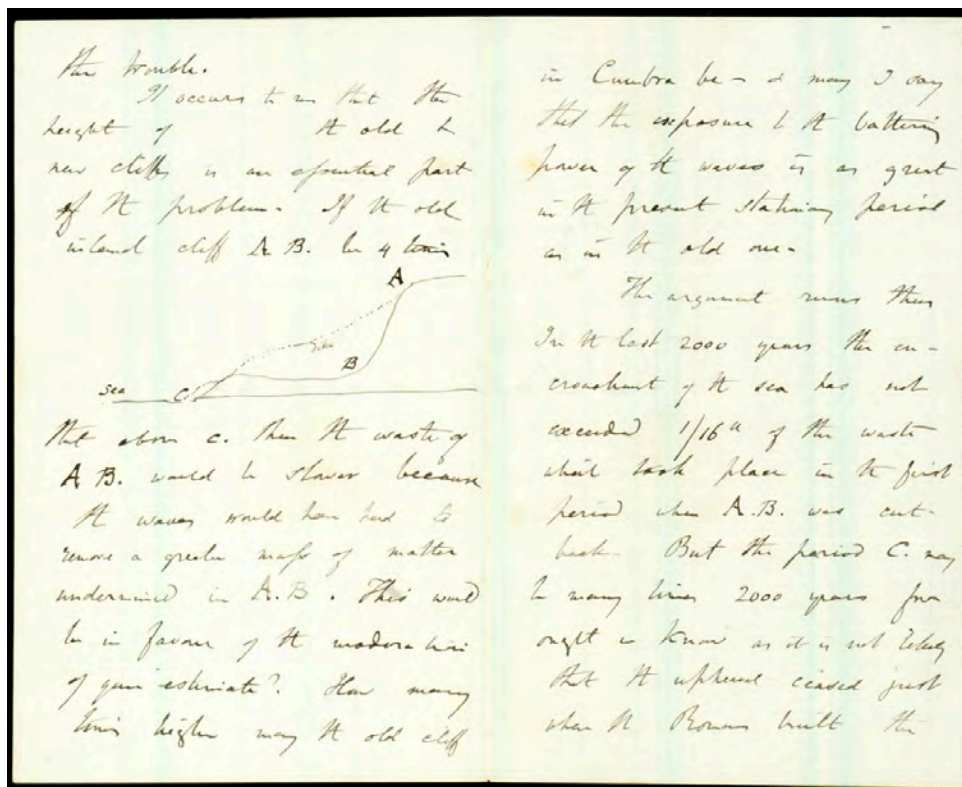 the trouble.
It occurs to me that the
height of the old to
new cliffs is an essential part
of the problem. If the old
inland cliff A B. be 4 times
A
B
Sea
C
that above c. then the waste of
A B. would be slower because
the waves would have had to
remove a greater mass of matter
undermined in A.B. This would
be in favour of the moderation
of your estimate? How many
times higher may the old cliff
in Cumbra be - & may I say
that the exposure to the battering
power of the waves is as great
in the present stationary period
as in the old one -
The argument runs thus
In the last 2000 years the en-
croachment of the sea has not
exceeded 1/16th of the waste
which took place in the first
period when A.B. was cut
back. But the period C. may
be many times 2000 years for
ought we know as it is not likely
that the upheaval ceased just
when the Romans built the